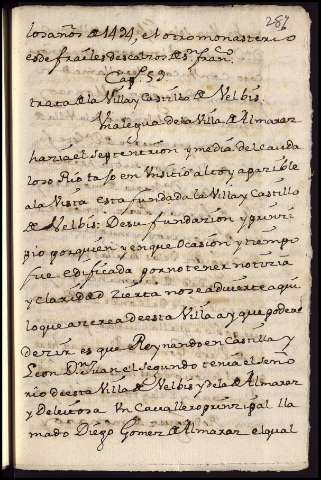 287
los años de 1494, el otro monasterio
es de frailes descalzos de sn. franco.
Capo. 53.
trata de la Villa y Castillo de Velbis.
Una legua de la Villa de Almaraz
hazia el septentrion y media del cauda
loso Rio tajo en un sitio alto y apazible
a la Vista esta fundada la Villa y Castillo
de Velbis: De su fundazion y prinzi
pio por quien y en que ocasion y tiempo
fue edificada por no tener notizia
y claridad zierta no se advierte aqui
lo que azerca de esta Villa ay que poder
dezir es que Reynando en Castilla y
Leon Dn. Juan el segundo tenia el seño
rio de esta Villa de Velbis y de la de Almaraz
y Deleitosa Un Cavallero prinzipal lla
mado Diego Gomez de Almaraz el qual